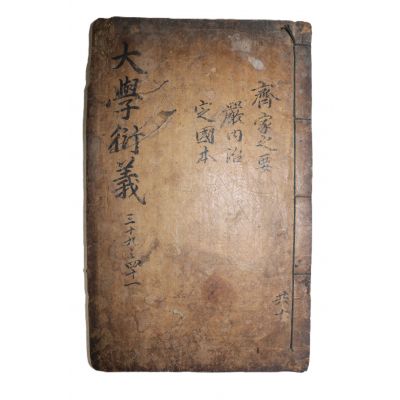 大學衍義
三十九之四十一
齊家之要
嚴內治
定國本
共十